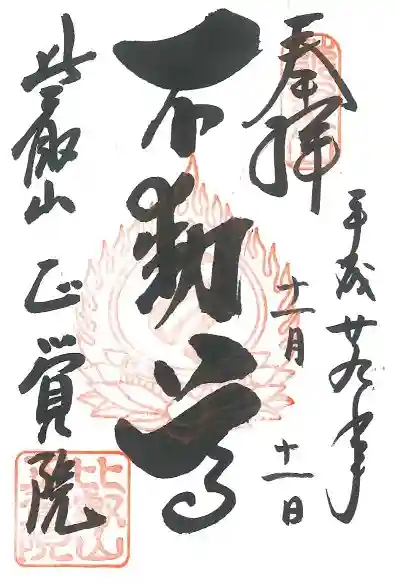 奉拝
平成廿九年
十一月
十一日
不動尊
比叡山 正覚院
比叡山